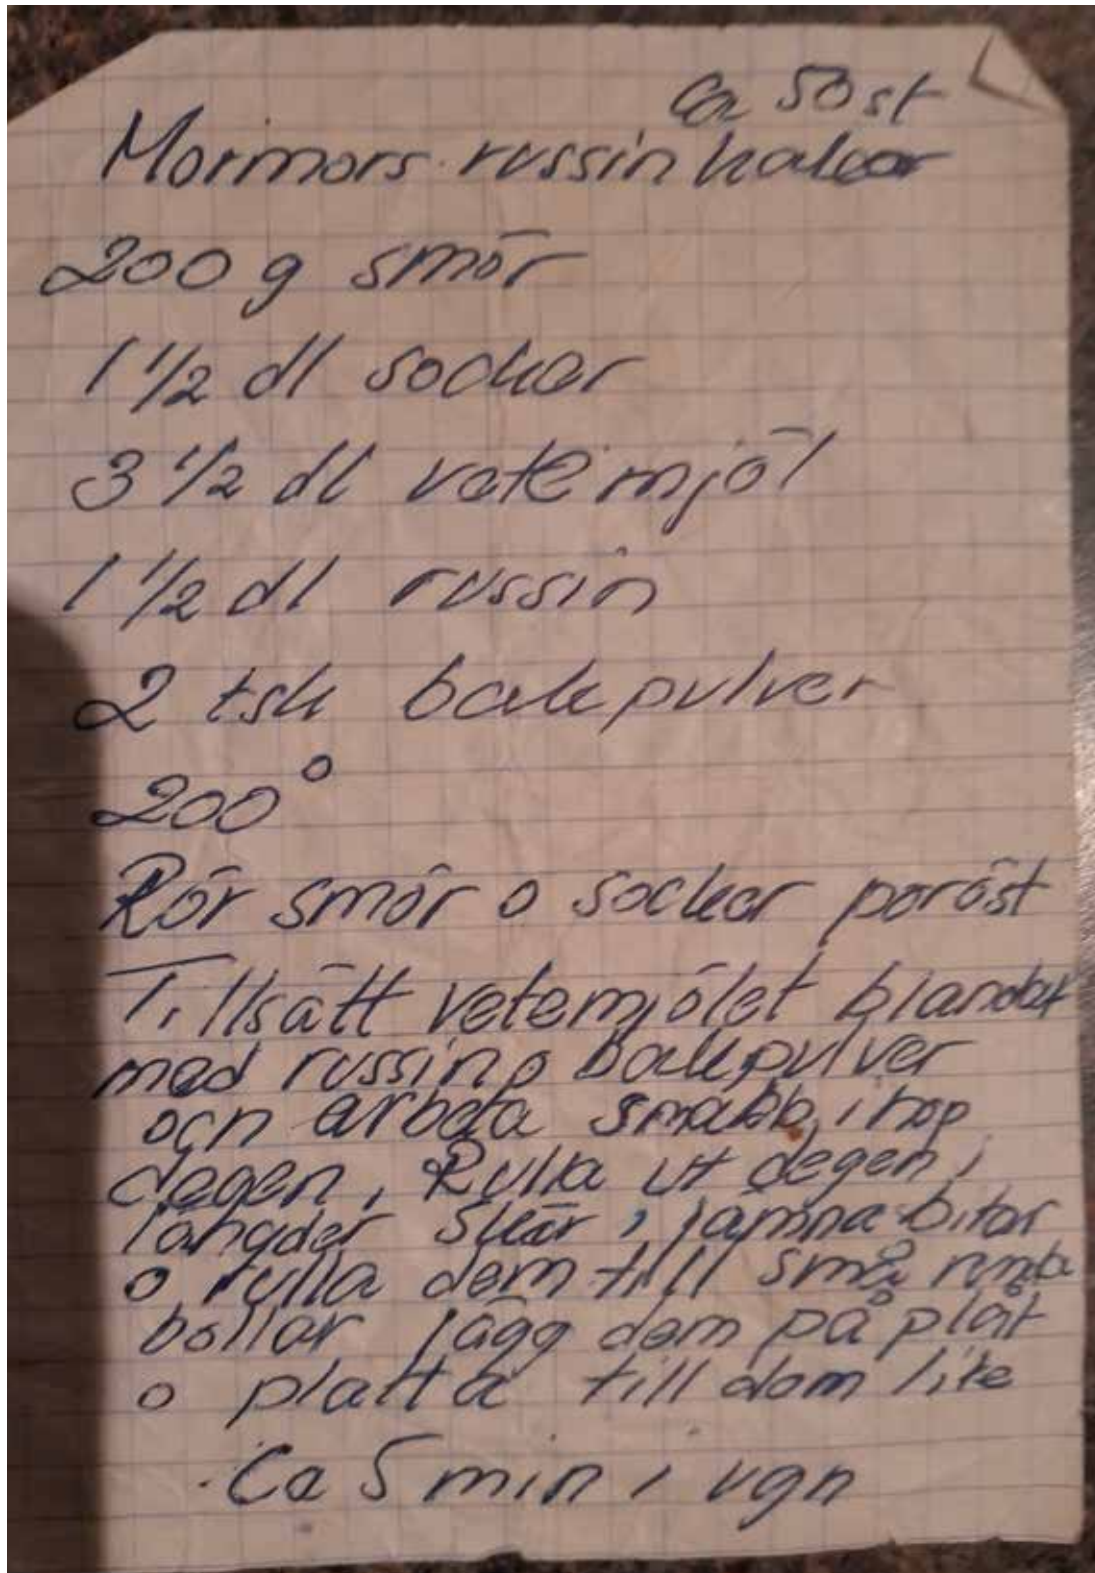 Ca 50 st
Mormors russinkakor
200 g smör
1 1/2 dl socker
3 1/2 dl vetemjöl
1 1/2 dl russin
2 tsk bakpulver
200°
Rör smör o socker poröst
Tillsätt vetemjölet blandat
med russin o bakpulver
och arbeta snabbt ihop
degen, Rulla ut degen i
längder skär i jämna bitar
o rulla dem till små runda
bollar lägg dem på plåt
o platta till dem lite
Ca 5 min i ugn